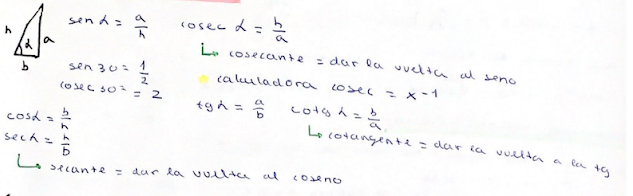 h a α b
sen α = a/h cosec α = h/a
↳ cosecante = dar la vuelta al seno
sen 30 = 1/2
cosec 30 = 2
★ calculadora cosec = x-1
tg α = a/b cotg α = b/a
↳ cotangente = dar la vuelta a la tg
cos α = b/h
sec α = h/b
↳ secante = dar la vuelta al coseno